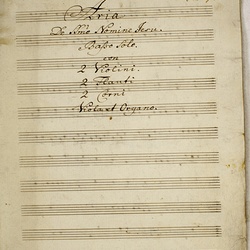 Aria
De SSmo Nomine Jesu.
Basso Solo.
con
2 Violini.
2 Flauti
2 Corni
Viola et Organo.